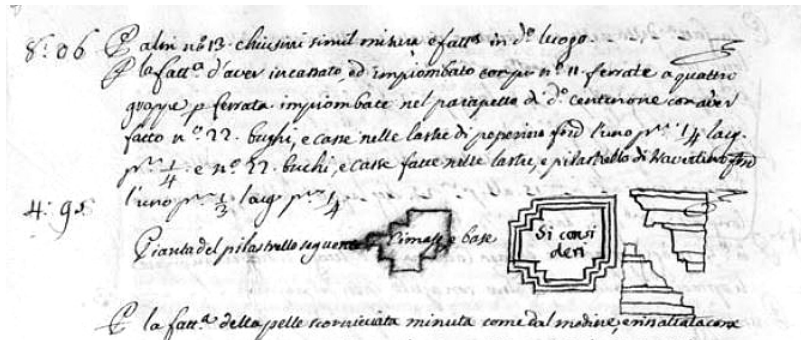 8:06 P altri nº 13. chiusini simil misura e fattª in dº luogo
P la fattª d'aver incassato, ed impiombato corpi nº 11. ferrate a quattro
grappe p ferrata impiombate nel parapetto di dº centinone con aver
fatto nº 22. bughi, e casse nelle lastre di peperino fond l'uno pº 1/4 larg.
pº 1/4. e nº 22. buchi, e casse fatte nelle lastre, e pilastrello di travertino fond
4:95 l'uno pº 1/3 larg pº 1/4.
Pianta del pilastrello seguente Cimasa e base
Si consi
deri
P la fattª della pelle scorniciata minuta come dal modine, e risaltata come